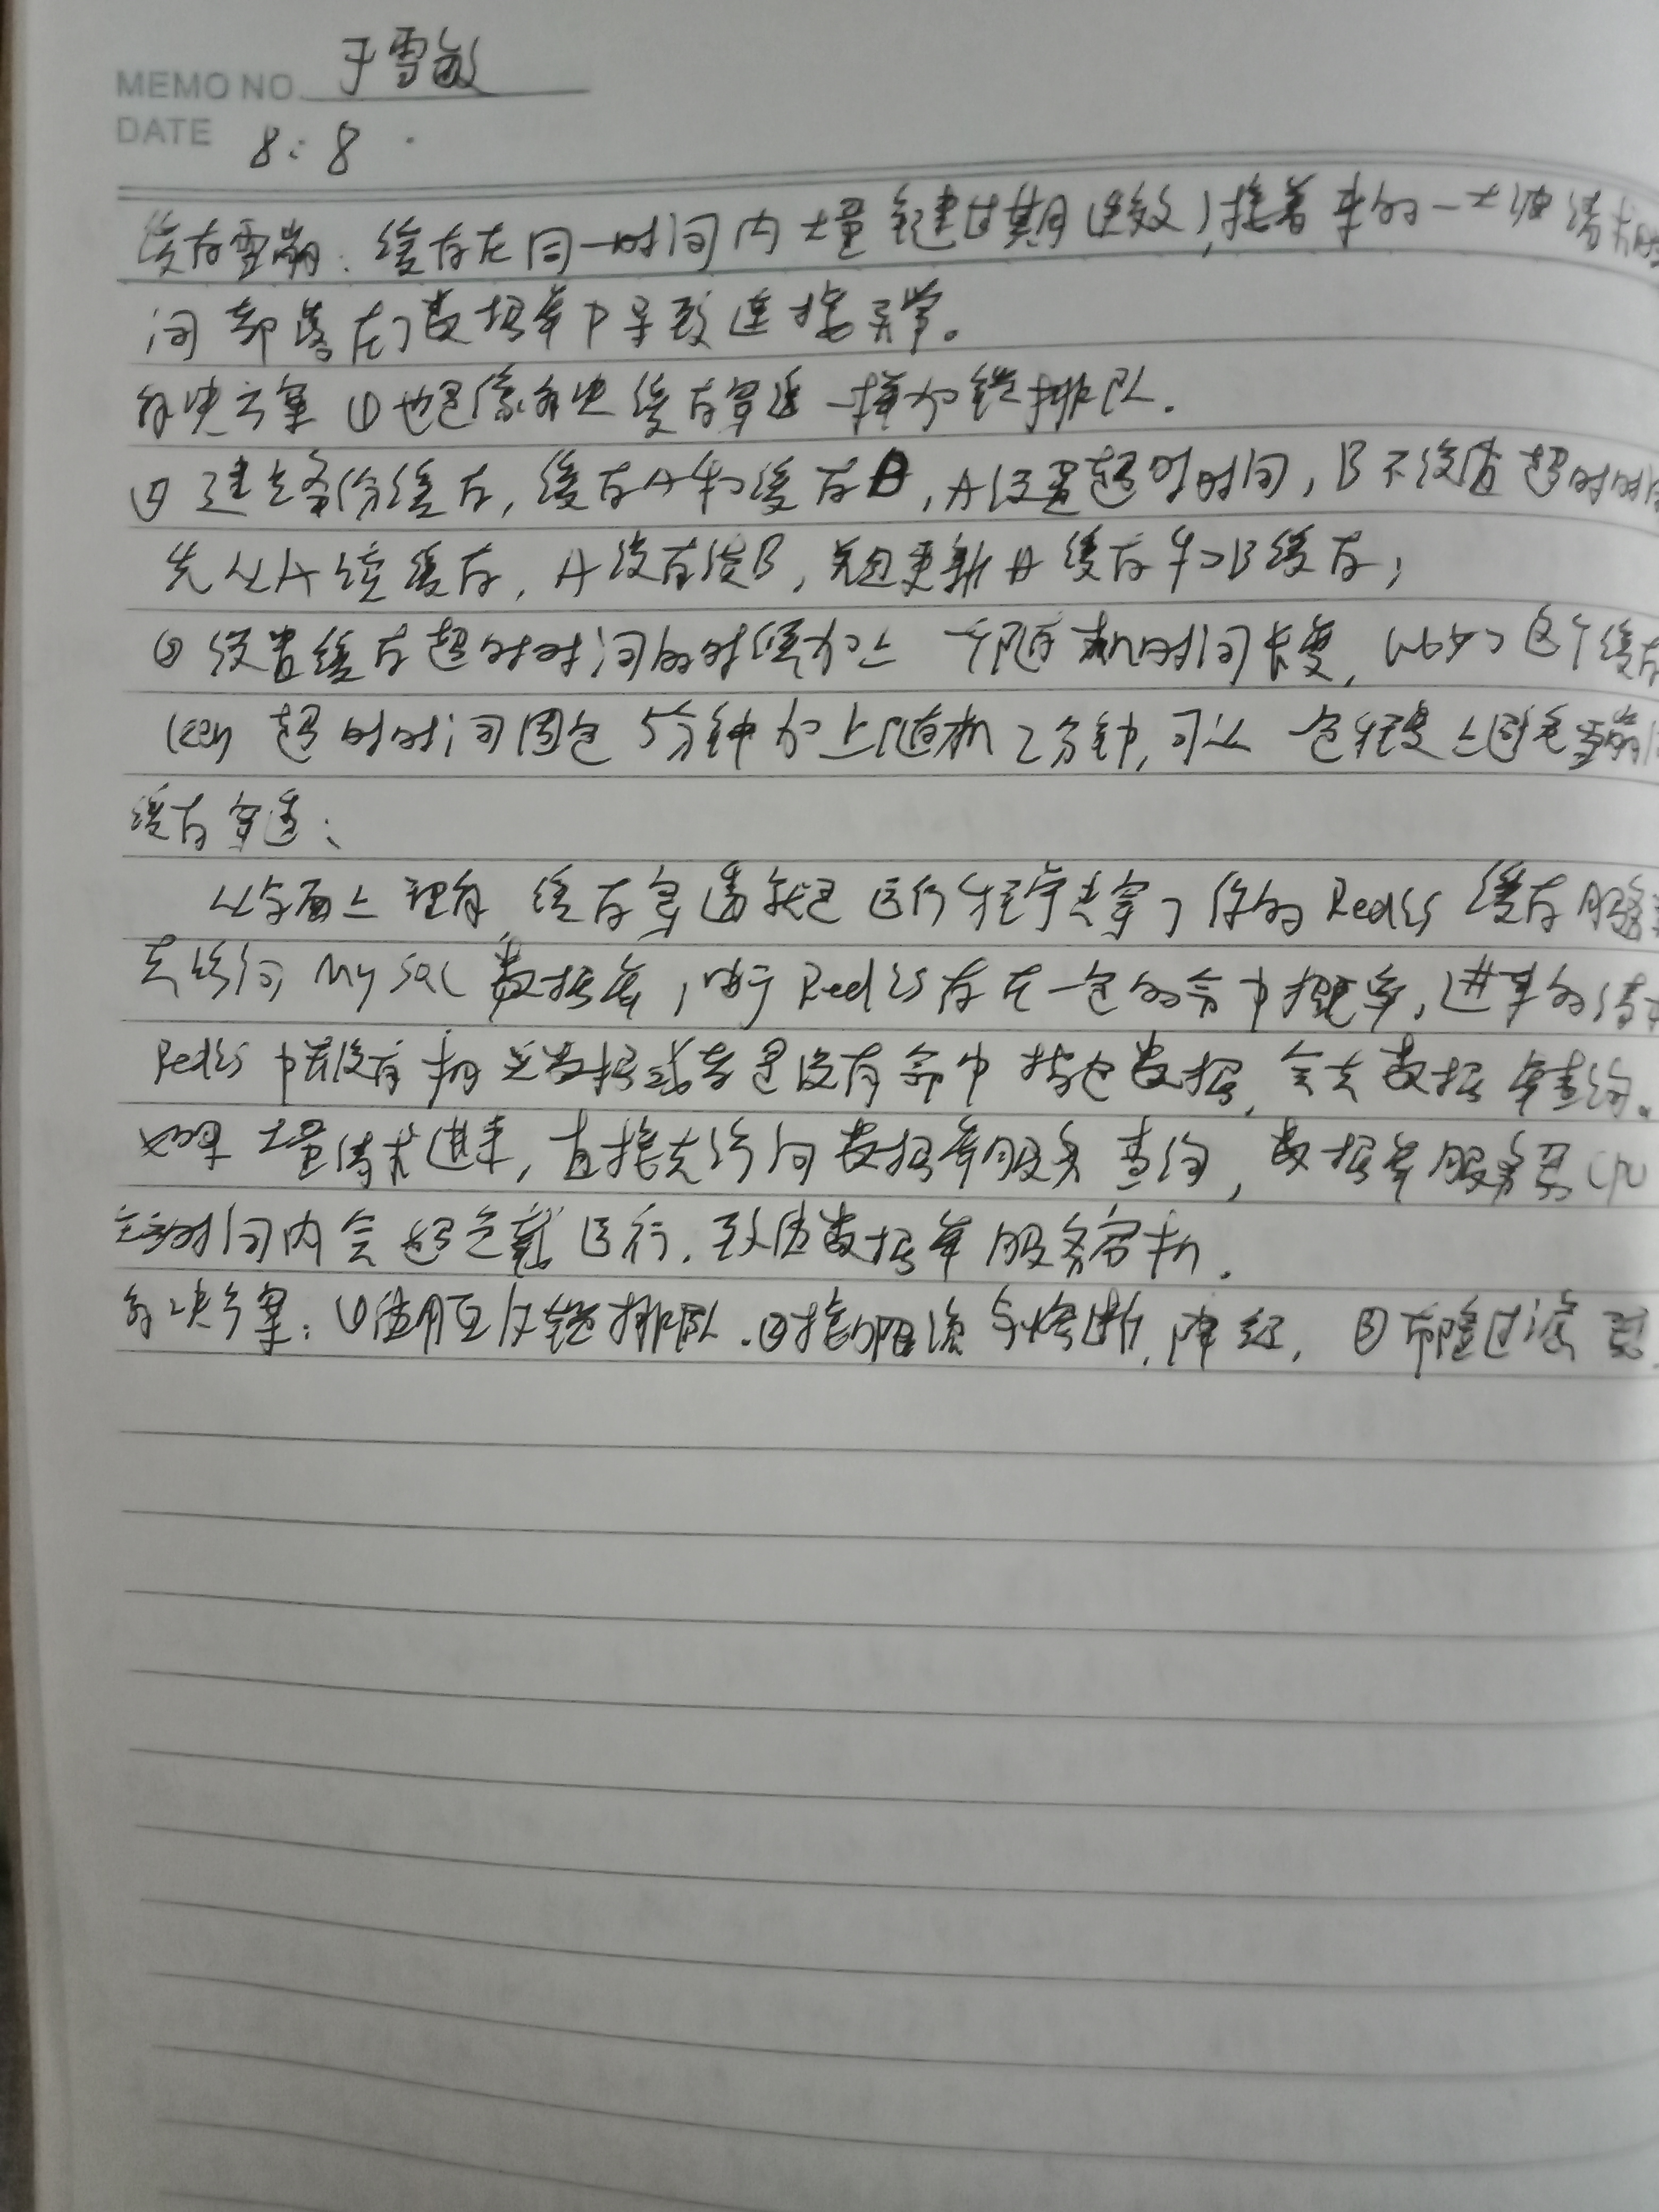 MEMO NO. 于雪敏
DATE 8:8.
缓存雪崩:缓存在同一时间内大量键过期(失效),接着来的一大波请求瞬
间都落在了数据库中导致连接异常。
解决方案 ①也是像解决缓存穿透一样加锁排队.
② 建立备份缓存,缓存A和缓存B,A设置超时时间,B不设值超时时间
先从A读缓存,A没有读B,并且更新A缓存和B缓存;
③ 设置缓存超时时间的时候加上一个随机时间长度,比如这个缓存
key 超时时间固定5分钟加上随机2分钟,可以一定程度上避免雪崩
缓存穿透:
从字面上理解,缓存穿透就是运行程序去穿了你的Redis 缓存服务
去访问 MySQL 数据库,由于Redis存在一定的命中概率,进来的请求
Redis 中若没有相关数据或者是没有命中指定数据,会去数据库查询.
如果大量请求进来,直接去访问数据库服务查询,数据库服务器CPU
时间内会超负载运行.致使数据库服务宕机.
解决方案:①使用互斥锁排队.②接口限流与熔断,降级,③布隆过滤器